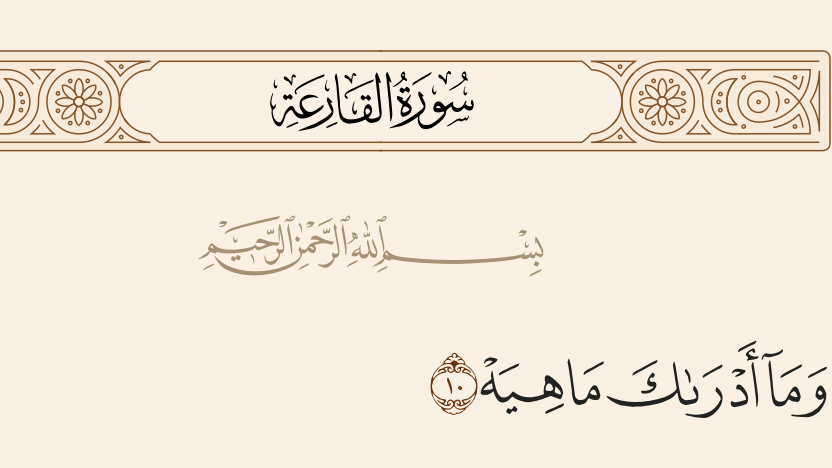 سُورَةُ القَارِعَةِ
بِسْمِ اللَّهِ الرَّحْمَٰنِ الرَّحِيمِ
وَمَآ أَدْرَىٰكَ مَا هِيَهْ ١٠